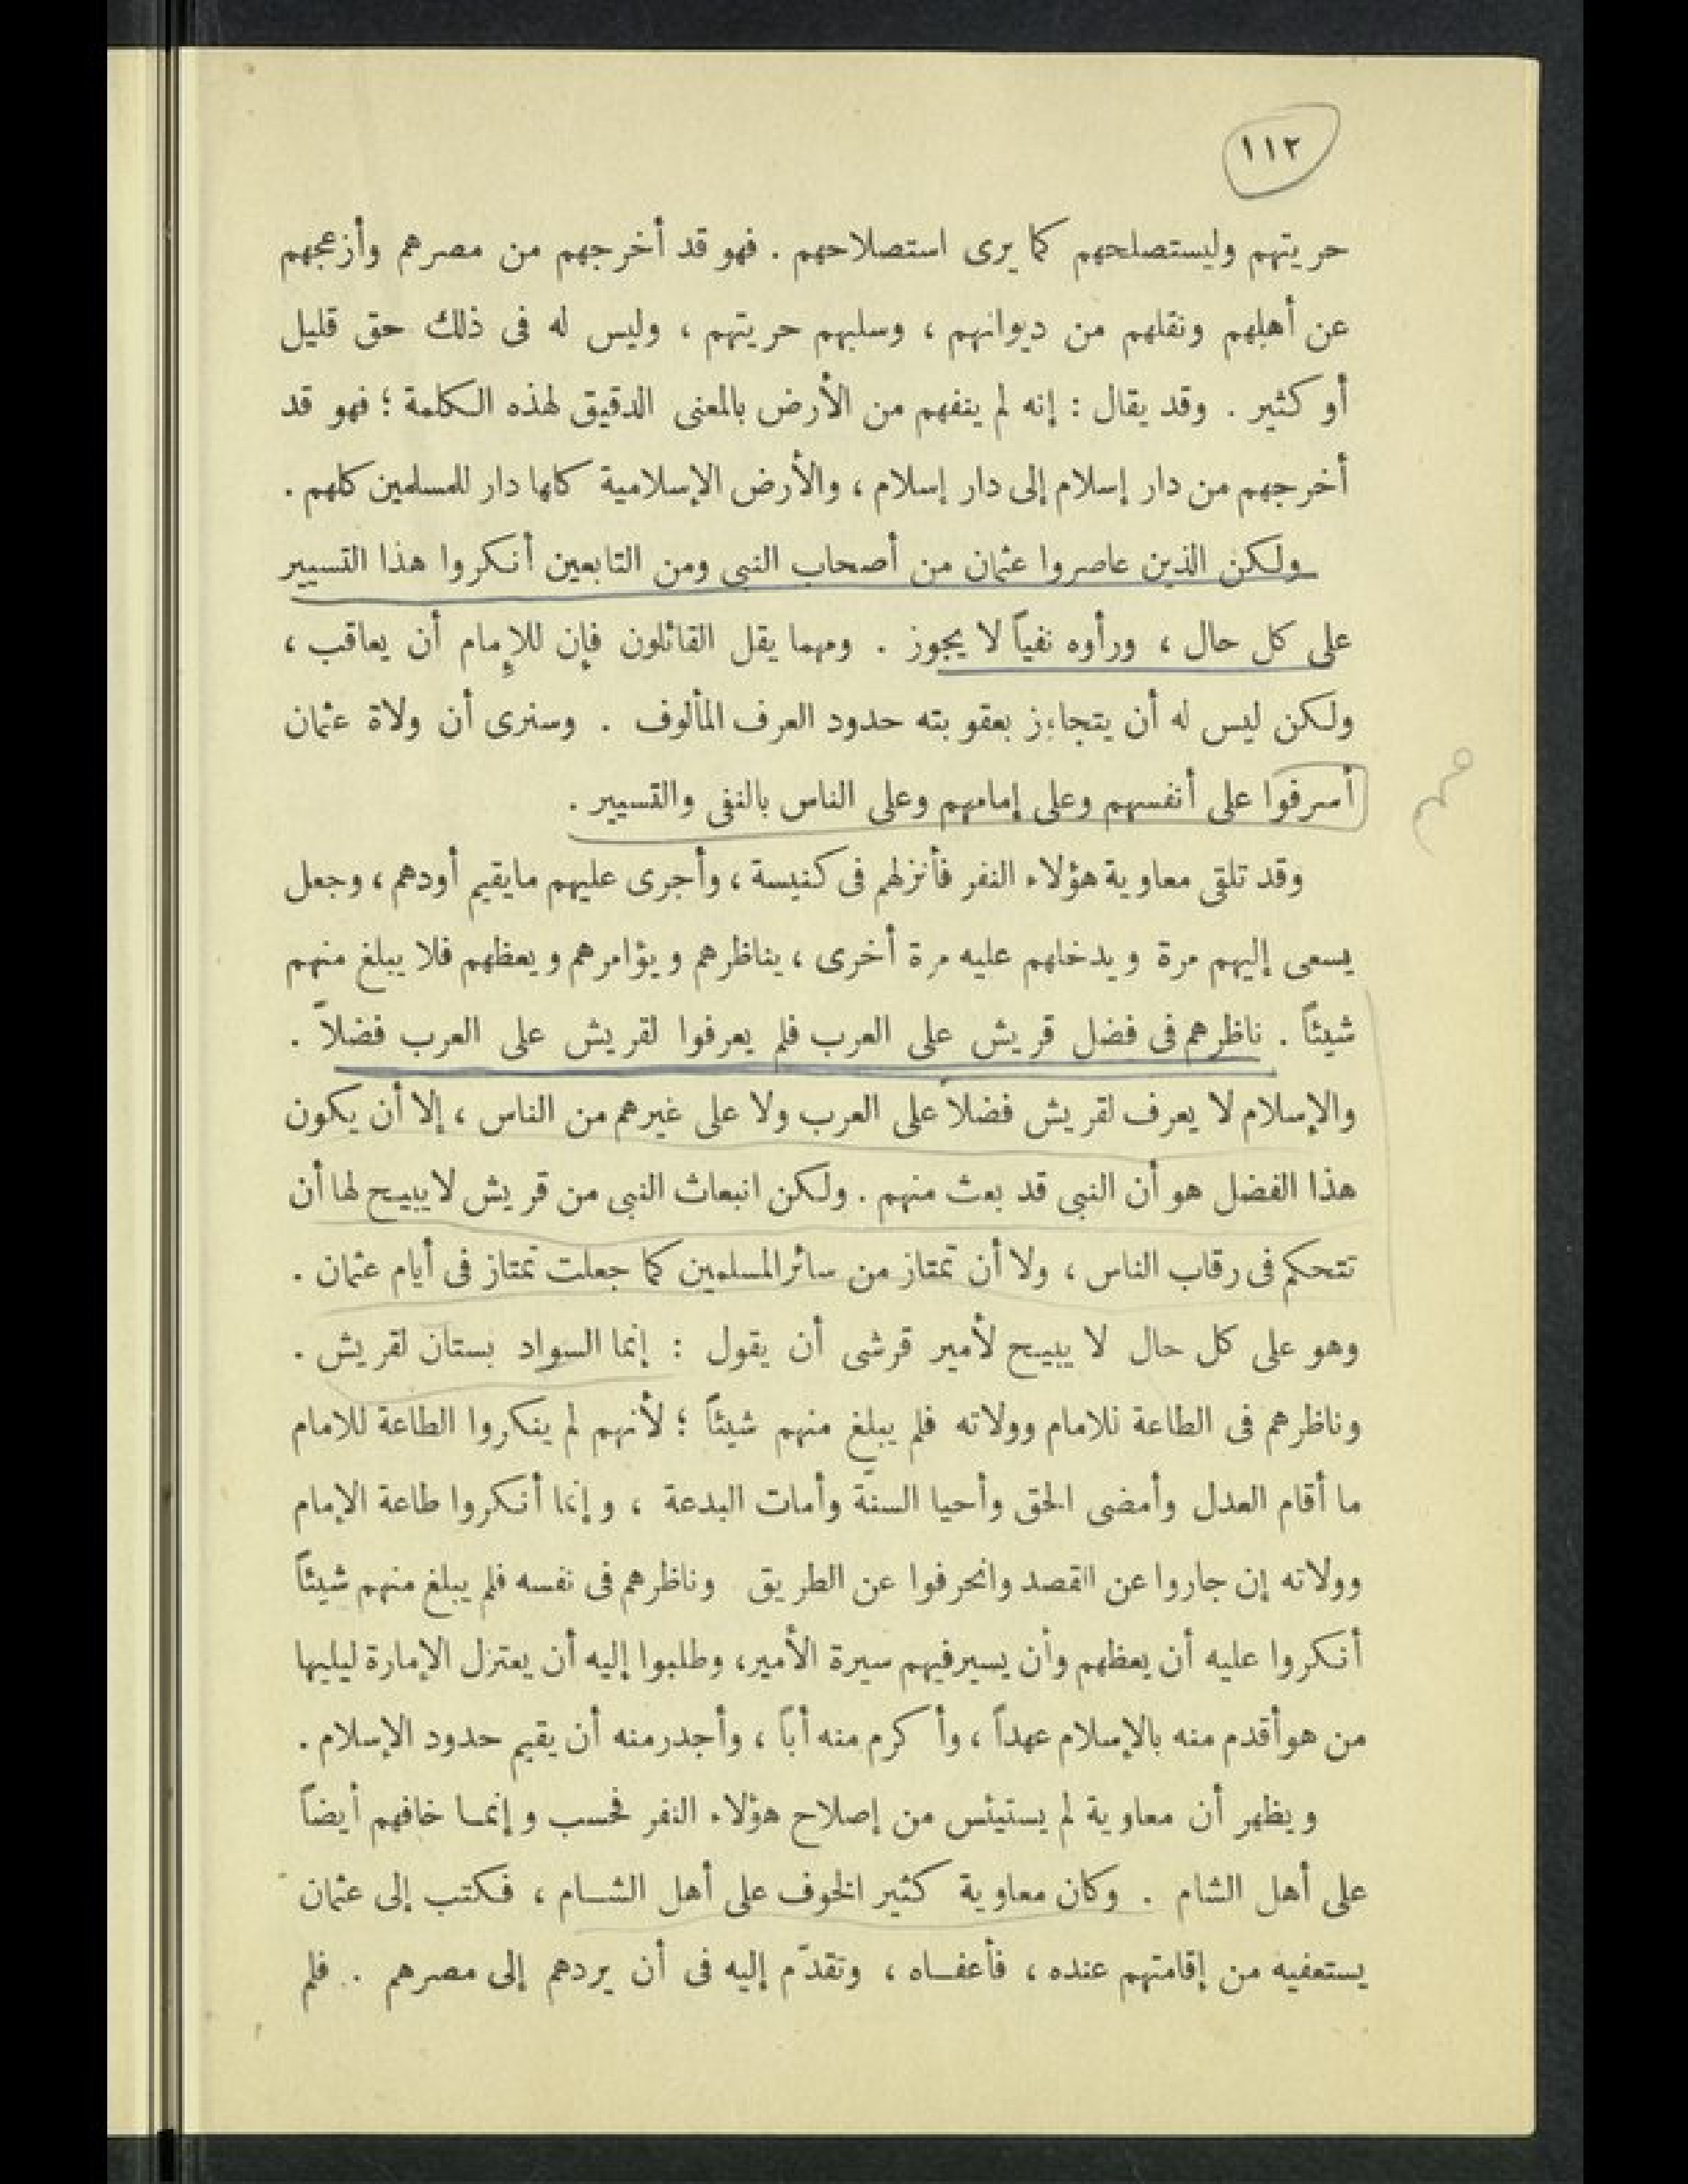 ١١٢
حريتهم وليستصلحهم كما يرى استصلاحهم . فهو قد أخرجهم من مصرهم وأزعجهم
عن أهلهم ونقلهم من ديوانهم ، وسلبهم حريتهم ، وليس له فى ذلك حق قليل
أو كثير . وقد يقال : إنه لم ينفهم من الأرض بالمعنى الدقيق لهذه الكلمة ؛ فهو قد
أخرجهم من دار إسلام إلى دار إسلام ، والأرض الإسلامية كلها دار للمسلمين كلهم .
ولكن الذين عاصروا عثمان من أصحاب النبى ومن التابعين أنكروا هذا التسيير
على كل حال ، ورأوه نفياً لا يجوز . ومهما يقل القائلون فإن للإمام أن يعاقب ،
ولكن ليس له أن يتجاوز بعقوبته حدود العرف المألوف . وسنرى أن ولاة عثمان
أسرفوا على أنفسهم وعلى إمامهم وعلى الناس بالنفى والتسيير .
مهم
وقد تلقى معاوية هؤلاء النفر فأنزلهم فى كنيسة ، وأجرى عليهم مايقيم أودهم ، وجعل
يسعى إليهم مرة ويدخلهم عليه مرة أخرى ، يناظرهم ويؤامرهم ويعظهم فلا يبلغ منهم
شيئاً . ناظرهم فى فضل قريش على العرب فلم يعرفوا لقريش على العرب فضلاً .
والإسلام لا يعرف لقريش فضلاً على العرب ولا على غيرهم من الناس ، إلا أن يكون
هذا الفضل هو أن النبى قد بعث منهم . ولكن انبعاث النبى من قريش لا يبيح لها أن
تتحكم فى رقاب الناس ، ولا أن تمتاز من سائر المسلمين كما جعلت تمتاز فى أيام عثمان .
وهو على كل حال لا يبيح لأمير قرشى أن يقول : إنما السواد بستان لقريش .
وناظرهم فى الطاعة للامام وولاته فلم يبلغ منهم شيئاً ؛ لأنهم لم ينكروا الطاعة للامام
ما أقام العدل وأمضى الحق وأحيا السنّة وأمات البدعة ، وإنما أنكروا طاعة الإمام
وولاته إن جاروا عن القصد وانحرفوا عن الطريق وناظرهم فى نفسه فلم يبلغ منهم شيئاً
أنكروا عليه أن يعظهم وأن يسير فيهم سيرة الأمير، وطلبوا إليه أن يعتزل الإمارة ليليها
من هو أقدم منه بالإسلام عهداً ، وأكرم منه أباً ، وأجدر منه أن يقيم حدود الإسلام .
ويظهر أن معاوية لم يستيئس من إصلاح هؤلاء النفر فحسب وإنمـا خافهم أيضاً
على أهل الشام . وكان معاوية كثير الخوف على أهل الشـام ، فكتب إلى عثمان
يستعفيه من إقامتهم عنده ، فأعفـاه ، وتقدّم إليه فى أن يردهم إلى مصرهم . فلم